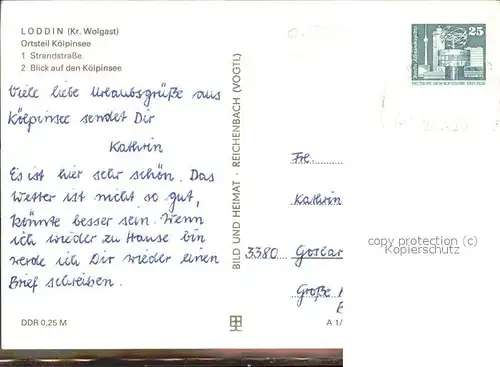 LODDIN (Kr. Wolgast)
Ortsteil Kölpinsee
1 Strandstraße
2 Blick auf den Kölpinsee
Viele liebe Urlaubsgrüße aus
Kölpinsee sendet Dir
Kathrin
Es ist hier sehr schön. Das
Wetter ist nicht so gut,
könnte besser sein. Wenn
ich wieder zu Hause bin
werde ich Dir wieder einen
Brief schreiben.
DDR 0,25 M
BILD UND HEIMAT · REICHENBACH (VOGTL)
25
DEUTSCHE DEMOKRATISCHE REPUBLIK
Frl.
Kathrin
3380 Goslar
Große
A 1/
copyright protection (c)
Kopierschutz